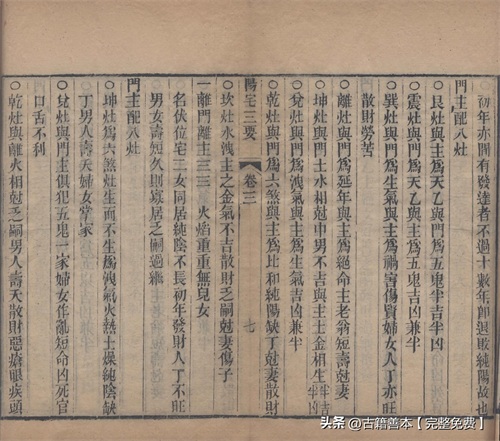 初年亦間有發達者不過十數年即退敗純陽故也
門主配八灶
○艮灶與主爲天乙與門爲五鬼半吉半凶
○震灶與門爲五鬼與主爲天乙吉凶兼半
○巽灶與門爲生氣與主爲禍害傷賢婦女人丁亦旺
散財勞苦
○離灶與門爲延年與主爲絶命主老翁短壽尅妻
○坤灶與門土水相尅中男不吉與主土金相生
○兌灶與門爲洩氣與主爲生氣吉凶兼半
○乾灶與門爲六煞與主爲比和純陽缺丁尅妻散財
陽宅三要
卷三
七
○坎灶水洩主之金氣不吉散財乏嗣尅妻傷子
一離門離主三三 火焰重重無兒女
名伏位宅二女同居純陰不長初年發財人丁不旺
男女壽短久則寡居乏嗣過繼
門主配八灶
○坤灶爲六煞灶生而不生爲洩氣火熱土燥純陰缺
丁男人壽夭婦女掌家
○兌灶與門主俱犯五鬼一家婦女作亂短命凶死官
口舌不利
○乾灶與離火相尅乏嗣男人壽夭散財惡瘡眼疾頭
头条 @古籍善本【完整免费】